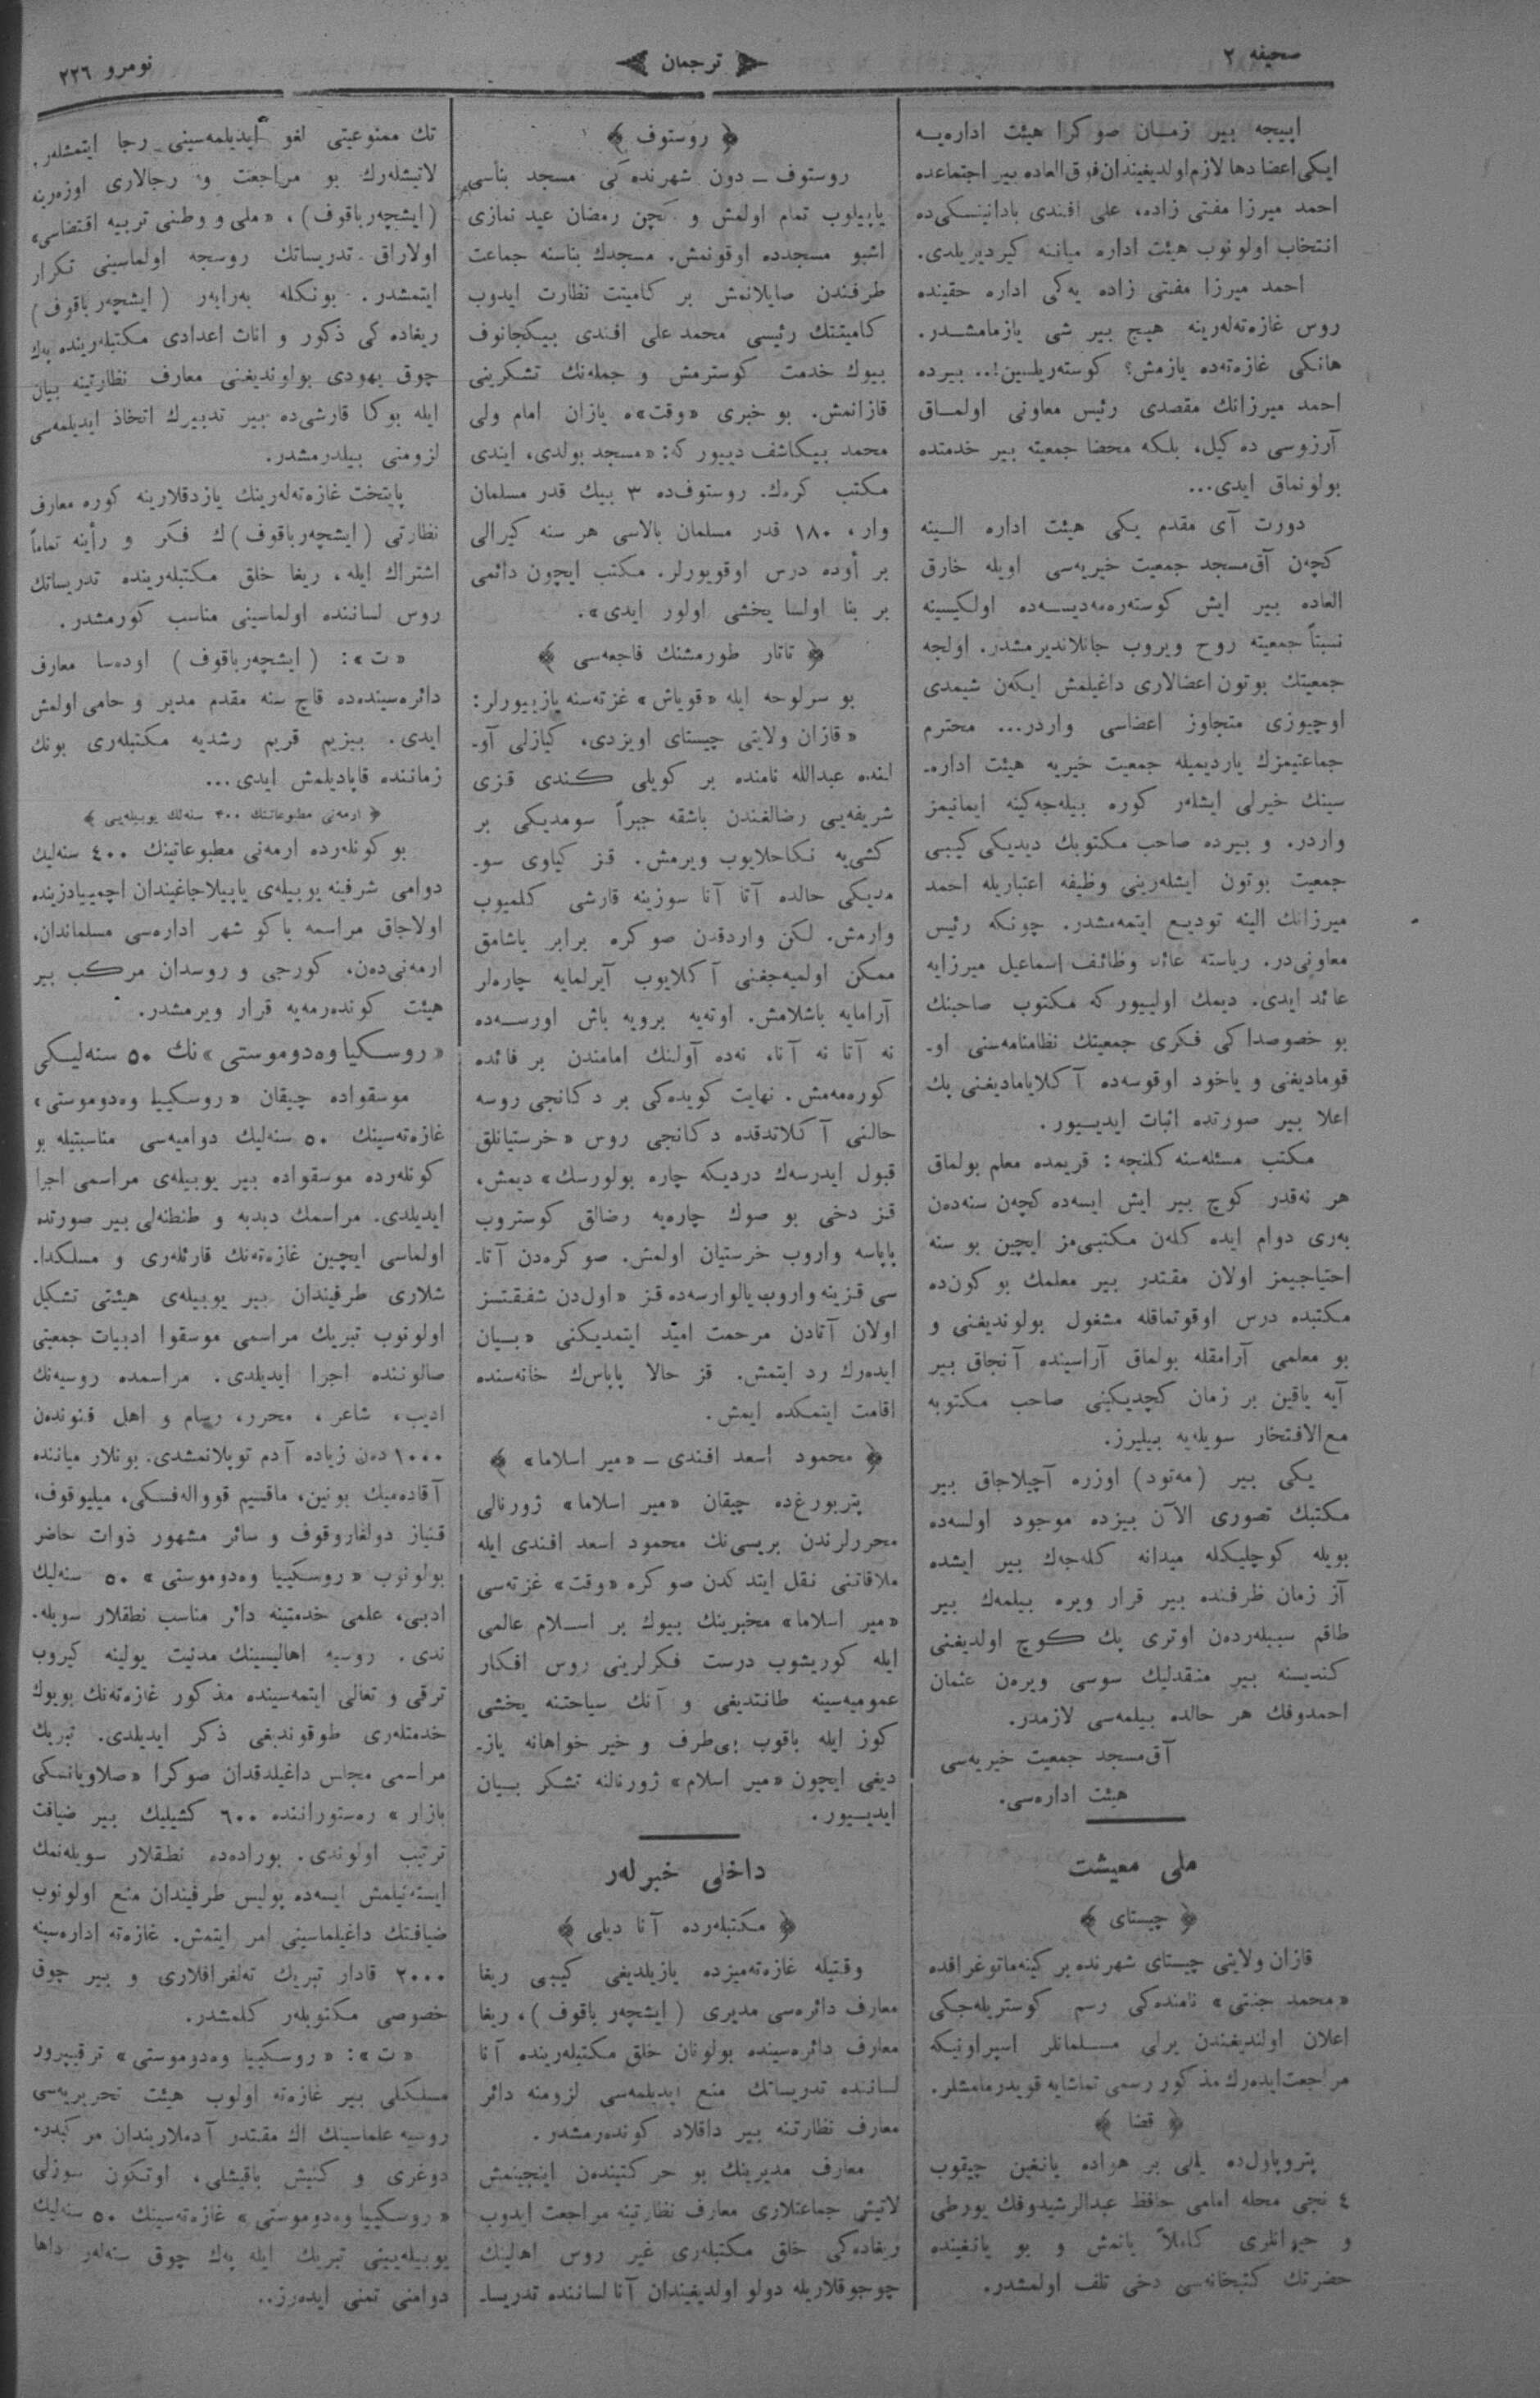 صحیفه ٢
ترجمان
نومرو ٢٢٦
ایپیجه بیر زمان صوکرا هیئت اداره‌یه
ایکی اعضا دها لازم اولدیغیندان فوق العاده بیر اجتماعده
احمد میرزا مفتی زاده، علی افندی بادانینسکی‌ده
انتخاب اولونوب هیئت اداره میاننه کیردیریلدی.
احمد میرزا مفتی زاده یه‌کی اداره حقینده
روس غازه‌ته‌لرینه هیچ بیر شی یازمامشدر.
هانکی غازه‌ته‌ده یازمش؟ کوسته‌ریلسین!.. بیرده
احمد میرزانك مقصدی رئیس معاونی اولماق
آرزوسی ده‌کیل، بلکه محضا جمعیته بیر خدمتده
بولونماق ایدی...
دورت آی مقدم یکی هیئت اداره الینه
کچه‌ن آق‌مسجد جمعیت خیریه‌سی اویله خارق
العاده بیر ایش کوسته‌ره‌مه‌دیسه‌ده اولکیسینه
نسبتاً جمعیته روح ویروب جانلاندیرمشدر. اولجه
جمعیتك بوتون اعضالاری داغیلمش ایکه‌ن شیمدی
اوچیوزی متجاوز اعضاسی واردر... محترم
جماعتیمزك یاردیمیله جمعیت خیریه هیئت اداره‌
سینك خیرلی ایشله‌ر کوره بیله‌جه‌کینه ایمانیمز
واردر. و بیرده صاحب مکتوبك دیدیکی کیبی
جمعیت بوتون ایشله‌رینی وظیفه اعتباریله احمد
میرزانك الینه تودیع ایتمه‌مشدر. چونکه رئیس
معاونی‌در. ریاسته عائد وظائف اسماعیل میرزایه
عائد ایدی. دیمك اولییور که مکتوب صاحبنك
بو خصوصداکی فکری جمعیتك نظامنامه‌سنی او-
قومادیغنی و یاخود اوقوسه‌ده آکلایامادیغنی پك
اعلا بیر صورتده اثبات ایدییور.
مکتب مسئله‌سنه کلنجه: قریمده معلم بولماق
هر نه‌قدر کوچ بیر ایش ایسه‌ده کچه‌ن سنه‌ده‌ن
به‌ری دوام ایده کله‌ن مکتبی‌مز ایچین بو سنه
احتیاجیمز اولان مقتدر بیر معلمك بو کون‌ده
مکتبده درس اوقوتماقله مشغول بولوندیغنی و
بو معلمی آرامقله بولماق آراسینده آنجاق بیر
آیه یاقین بر زمان کچدیکینی صاحب مکتوبه
مع‌الافتخار سویله‌یه بیلیرز.
یکی بیر (مه‌تود) اوزره آچیلاجاق بیر
مکتبك تصوری الآن بیزده موجود اولسه‌ده
بویله کوچلیکله میدانه کله‌جه‌ك بیر ایشده
آز زمان ظرفنده بیر قرار ویره بیلمه‌ك بیر
طاقم سببله‌رده‌ن اوتری پك کوچ اولدیغنی
کندیسنه بیر منقدلیك سوسی ویره‌ن عثمان
احمدوفك هر حالده بیلمه‌سی لازمدر.
آق‌مسجد جمعیت خیریه‌سی
هیئت اداره‌سی.
ملی معیشت
﴿ چیستای ﴾
قازان ولایتی چیستای شهرنده بر کینه‌ماتوغرافده
«محمد جنتی» نامنده‌کی رسم کوستریله‌جکی
اعلان اولندیغندن یرلی مسلمانلر اسپراونیکه
مراجعت‌ایده‌رك مذکور رسمی تماشایه قویدرمامشلر.
﴿ قضا ﴾
پتروپاول‌ده یللی بر هواده یانغین چیقوب
٤ نجی محله امامی حافظ عبدالرشیدوفك یورطی
و حیوانلری کاملاً یانمش و بو یانغینده
حضرتك کتبخانه‌سی دخی تلف اولمشدر.
﴿ روستوف ﴾
روستوف ـ دون شهرنده کی مسجد بناسی
یاپیلوب تمام اولمش و کچن رمضان عید نمازی
اشبو مسجدده اوقونمش. مسجدك بناسنه جماعت
طرفندن صایلانمش بر کامیتت نظارت ایدوب
کامیتتك رئیسی محمد علی افندی بیکجانوف
بیوك خدمت کوسترمش و جمله‌نك تشکرینی
قازانمش. بو خبری «وقت»ه یازان امام ولی
محمد بیکاشف دییور که: «مسجد بولدی، ایندی
مکتب کره‌ك. روستوف‌ده ٣ بیك قدر مسلمان
وار، ١٨٠ قدر مسلمان بالاسی هر سنه کیرالی
بر أوده درس اوقویورلر. مکتب ایچون دائمی
بر بنا اولسا یخشی اولور ایدی».
﴿ تاتار طورمشنك فاجعه‌سی ﴾
بو سرلوحه ایله «قویاش» غزته‌سنه یازییورلر:
«قازان ولایتی چیستای اویزدی، کیازلی آو-
لنده عبدالله نامنده بر کویلی کندی قزی
شریفه‌یی رضالغندن باشقه جبراً سومدیکی بر
کشی‌یه نکاحلایوب ویرمش. قز کیاوی سو-
مدیکی حالده آتا آنا سوزینه قارشی کلمیوب
وارمش. لکن واردقدن صوکره برابر یاشامق
ممکن اولمیه‌جغنی آکلایوب آیرلمایه چاره‌لر
آرامایه باشلامش. اوته‌یه برویه باش اورسه‌ده
نه آتا نه آنا، نه‌ده آولنك امامندن بر فائده
کوره‌مه‌مش. نهایت کویده‌کی بر دکانجی روسه
حالنی آکلاتدقده دکانجی روس «خرستیانلق
قبول ایدرسه‌ك دردیکه چاره بولورسك» دیمش،
قز دخی بو صوك چاره‌یه رضالق کوستروب
پاپاسه واروب خرستیان اولمش. صوکره‌دن آتا-
سی قزینه واروب یالوارسه‌ده قز «اول‌دن شفقتسز
اولان آتادن مرحمت امید ایتمدیکنی» بیان
ایده‌رك رد ایتمش. قز حالا پاپاس‌ك خانه‌سنده
اقامت ایتمکده ایمش.
﴿ محمود اسعد افندی ـ «میر اسلاما» ﴾
پتربورغ‌ده چیقان «میر اسلاما» ژورنالی
محررلرندن بریسی‌نك محمود اسعد افندی ایله
ملاقاتنی نقل ایتدکدن صوکره «وقت» غزته‌سی
«میر اسلاما» مخبرینك بیوك بر اسلام عالمی
ایله کوریشوب درست فکرلرینی روس افکار
عمومیه‌سینه طانتدیغی و آنك سیاحتنه یخشی
کوز ایله باقوب بی‌طرف و خیر خواهانه یاز-
دیغی ایچون «میر اسلام» ژورنالنه تشکر بیان
ایدییور.
داخلی خبرله‌ر
﴿ مکتبله‌رده آنا دیلی ﴾
وقتیله غازه‌ته‌میزده یازیلدیغی کیبی ریغا
معارف دائره‌سی مدیری (ایشچه‌رباقوف)، ریغا
معارف دائره‌سینده بولونان خلق مکتبله‌رینده آنا
لساننده تدریساتك منع ایدیلمه‌سی لزومنه دائر
معارف نظارتنه بیر داقلاد کونده‌رمشدر.
معارف مدیرینك بو حرکتینده‌ن اینجینمش
لاتیش جماعتلاری معارف نظارتینه مراجعت ایدوب
ریغاده‌کی خلق مکتبله‌ری غیر روس اهالینك
چوجوقلاریله دولو اولدیغیندان آنا لساننده تدریسا-
تك ممنوعیتی لغو ایدیلمه‌سینی رجا ایتمشله‌ر.
لاتیشله‌رك بو مراجعت و رجالاری اوزه‌رینه
(ایشچه‌رباقوف)، «ملی و وطنی تربیه اقتضاسی»
اولاراق تدریساتك روسجه اولماسینی تکرار
ایتمشدر. بونکله به‌رابه‌ر (ایشچه‌رباقوف)
ریغاده کی ذکور و اناث اعدادی مکتبله‌رینده په‌ك
چوق یهودی بولوندیغنی معارف نظارتینه بیان
ایله بوکا قارشی‌ده بیر تدبیرك اتخاذ ایدیلمه‌سی
لزومنی بیلدرمشدر.
پایتخت غازه‌ته‌له‌رینك یازدقلارینه کوره معارف
نظارتی (ایشچه‌رباقوف)ك فکر و رأینه تماماً
اشتراك ایله، ریغا خلق مکتبله‌رینده تدریساتك
روس لساننده اولماسینی مناسب کورمشدر.
«ت»: (ایشچه‌رباقوف) اوده‌سا معارف
دائره‌سینده‌ده قاچ سنه مقدم مدیر و حامی اولمش
ایدی. بیزیم قریم رشدیه مکتبله‌ری بونك
زماننده قاپادیلمش ایدی...
﴿ ارمه‌نی مطبوعاتنك ۴۰۰ سنه‌لك یوبیله‌یی ﴾
بو کونله‌رده ارمه‌نی مطبوعاتینك ٤٠٠ سنه‌لیك
دوامی شرفینه یوبیله‌ی یاپیلاجاغیندان اچمییادزینده
اولاجاق مراسمه باکو شهر اداره‌سی مسلماندان،
ارمه‌نی‌ده‌ن، کورجی و روسدان مرکب بیر
هیئت کونده‌رمه‌یه قرار ویرمشدر.
«روسکیا وه‌دوموستی» نك ٥٠ سنه‌لیکی
موسقواده چیقان «روسکییا وه‌دوموستی»
غازه‌ته‌سینك ٥٠ سنه‌لیك دوامیه‌سی مناسبتیله بو
کونله‌رده موسقواده بیر یوبیله‌ی مراسمی اجرا
ایدیلدی. مراسمك دبدبه و طنطنه‌لی بیر صورتده
اولماسی ایچین غازه‌ته‌نك قارئله‌ری و مسلکدا-
شلاری طرفیندان بیر یوبیله‌ی هیئتی تشکیل
اولونوب تبریك مراسمی موسقوا ادبیات جمعیتی
صالوننده اجرا ایدیلدی. مراسمده روسیه‌نك
ادیب، شاعر، محرر، رسام و اهل فنونده‌ن
١٠٠٠ ده‌ن زیاده آدم توپلانمشدی. بونلار میاننده
آقاده‌میك بونین، ماقسیم قوواله‌فسکی، میلیوقوف،
قنیاز دولغاروقوف و سائر مشهور ذوات حاضر
بولونوب «روسکییا وه‌دوموستی» ٥٠ سنه‌لیك
ادبی، علمی خدمتینه دائر مناسب نطقلار سویله-
ندی. روسیه اهالیسینك مدنیت یولینه کیروب
ترقی و تعالی ایتمه‌سینده مذکور غازه‌ته‌نك بویوك
خدمتله‌ری طوقوندیغی ذکر ایدیلدی. تبریك
مراسمی مجلس داغیلدقدان صوکرا «صلاویانسکی
بازار» ره‌ستوراننده ٦٠٠ کشیلیك بیر ضیافت
ترتیب اولوندی. بوراده‌ده نطقلار سویله‌نمك
ایسته‌نیلمش ایسه‌ده پولیس طرفیندان منع اولونوب
ضیافتك داغیلماسینی امر ایتمش. غازه‌ته اداره‌سینه
٢٠٠٠ قادار تبریك ته‌لغرافلاری و بیر چوق
خصوصی مکتوبله‌ر کلمشدر.
«ت»: «روسکییا وه‌دوموستی» ترقیپرور
مسلکلی بیر غازه‌ته اولوب هیئت تحریریه‌سی
روسیه علماسینك اك مقتدر آدملاریندان مرکبدر.
دوغری و کنیش باقیشلی، اوتکون سوزلی
«روسکییا وه‌دوموستی» غازه‌ته‌سینك ٥٠ سنه‌لیك
یوبیله‌یینی تبریك ایله په‌ك چوق سنه‌له‌ر داها
دوامنی تمنی ایده‌رز..